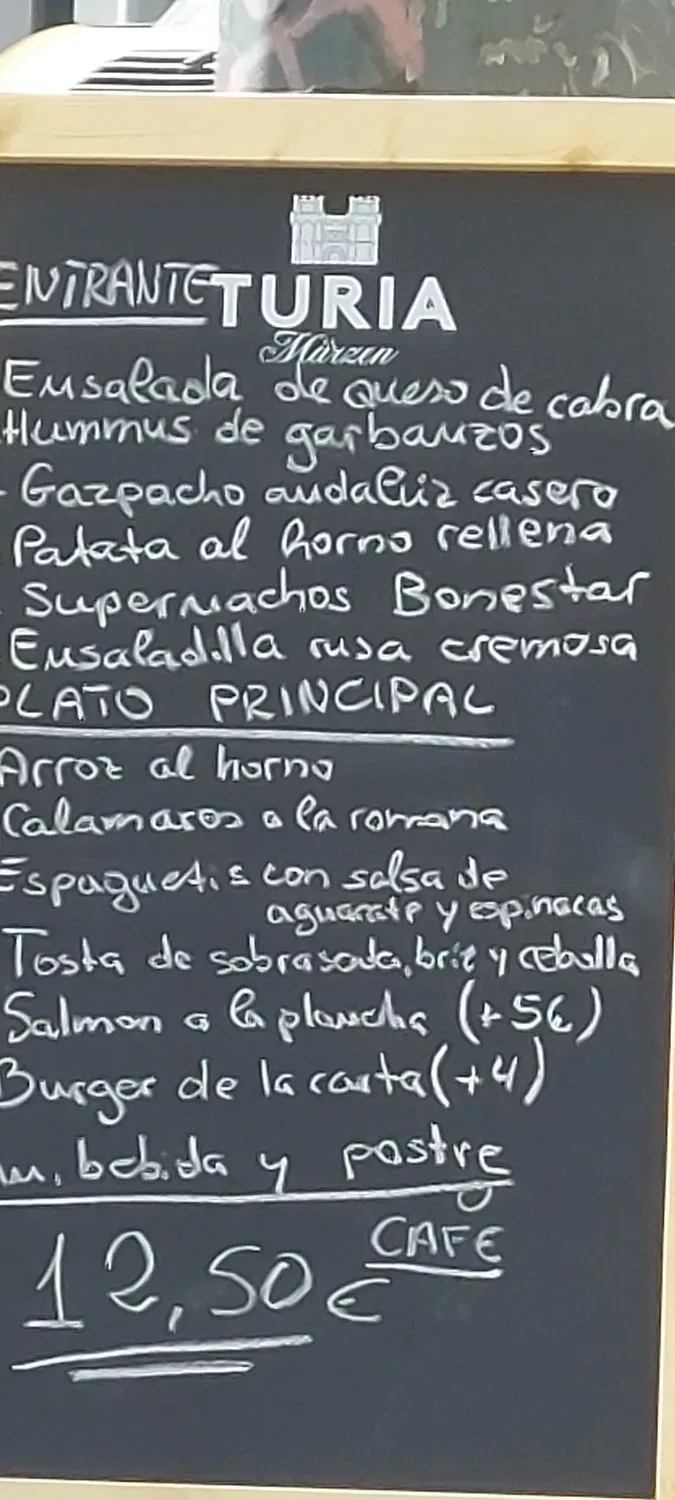 TURIA
Märzen
ENTRANTE
Ensalada de queso de cabra
Hummus de garbanzos
- Gazpacho andaluz casero
Patata al horno rellena
Supernachos Bonestar
Ensaladilla rusa cremosa
PLATO PRINCIPAL
Arroz al horno
Calamares a la romana
Espaguetis con salsa de
aguacate y espinacas
Tosta de sobrasada, brie y cebolla
Salmon a la plancha (+5€)
Burger de la carta (+4)
bebida y postre
o
CAFE
12,50€